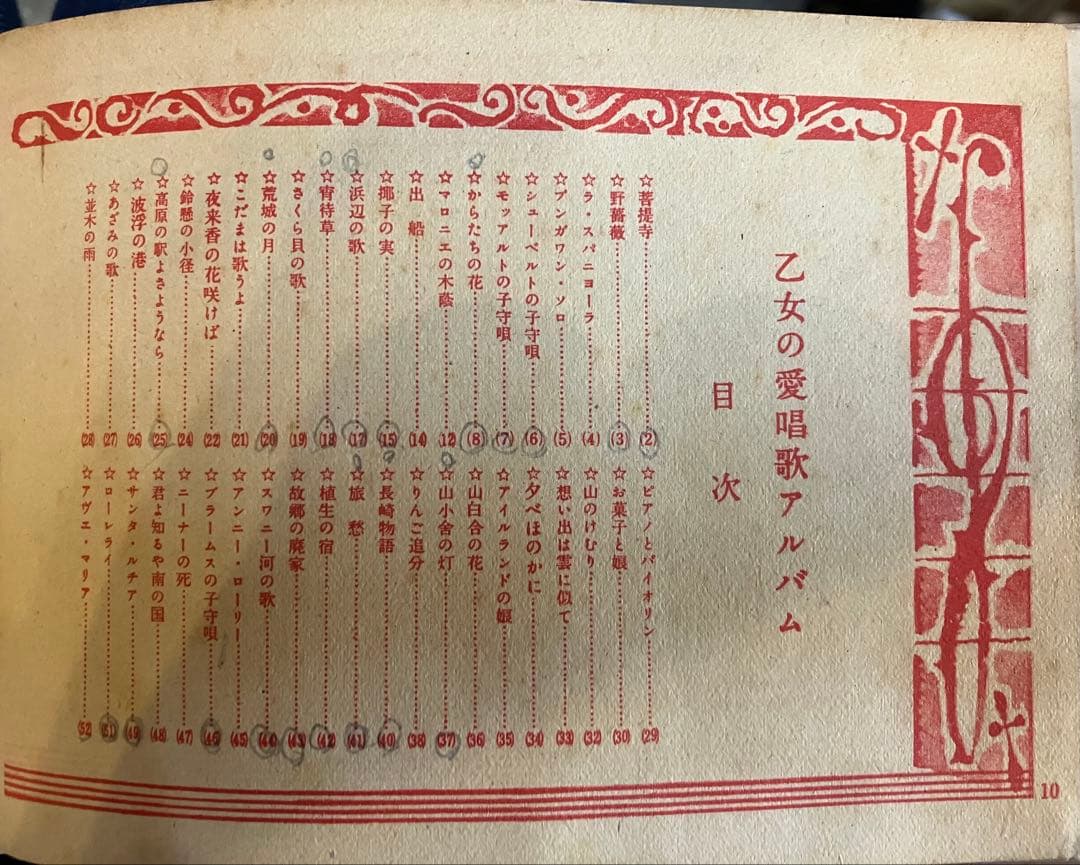 乙女の愛唱歌アルバム
目次
☆菩提寺……(2)
☆野薔薇……(3)
☆ラ・スパニヨーラ……(4)
☆ブンガワン・ソロ……(5)
☆シューベルトの子守唄……(6)
☆モッアルトの子守唄……(7)
☆からたちの花……(8)
☆マロニエの木蔭……(12)
☆出船……(14)
☆椰子の実……(15)
☆浜辺の歌……(17)
☆宵待草……(18)
☆さくら貝の歌……(19)
☆荒城の月……(20)
☆こだまは歌うよ……(21)
☆夜来香の花咲けば……(22)
☆鈴懸の小径……(24)
☆高原の駅よさようなら……(25)
☆波浮の港……(26)
☆あざみの歌……(27)
☆並木の雨……(28)
☆ピアノとバイオリン……(29)
☆お菓子と娘……(30)
☆山のけむり……(32)
☆想い出は雲に似て……(33)
☆夕べほのかに……(34)
☆アイルランドの娘……(35)
☆山白合の花……(36)
☆山小舎の灯……(37)
☆りんご追分……(38)
☆長崎物語……(40)
☆旅愁……(41)
☆植生の宿……(42)
☆故郷の廃家……(43)
☆スワニー河の歌……(44)
☆アンニー・ローリー……(45)
☆ブラームスの子守唄……(46)
☆ニーナーの死……(47)
☆君よ知るや南の国……(48)
☆サンタ・ルチア……(49)
☆ローレライ……(51)
☆アヴエ・マリア……(52)
10